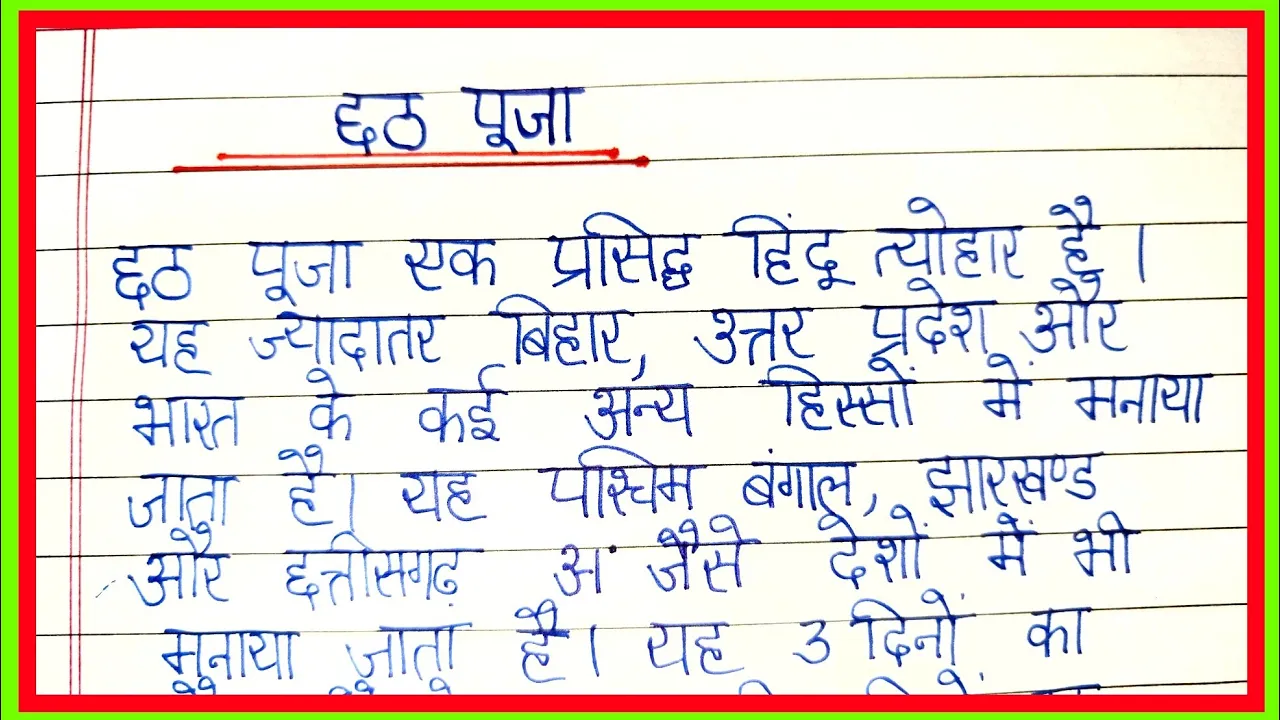 छठ पूजा
छठ पूजा एक प्रसिद्ध हिंदू त्योहार है।
यह ज्यादातर बिहार, उत्तर प्रदेश और
भारत के कई अन्य हिस्सों में मनाया
जाता है। यह पश्चिम बंगाल, झारखण्ड
और छत्तीसगढ़ अं जैसे देशों में भी
मनाया जाता है। यह 3 दिनों का